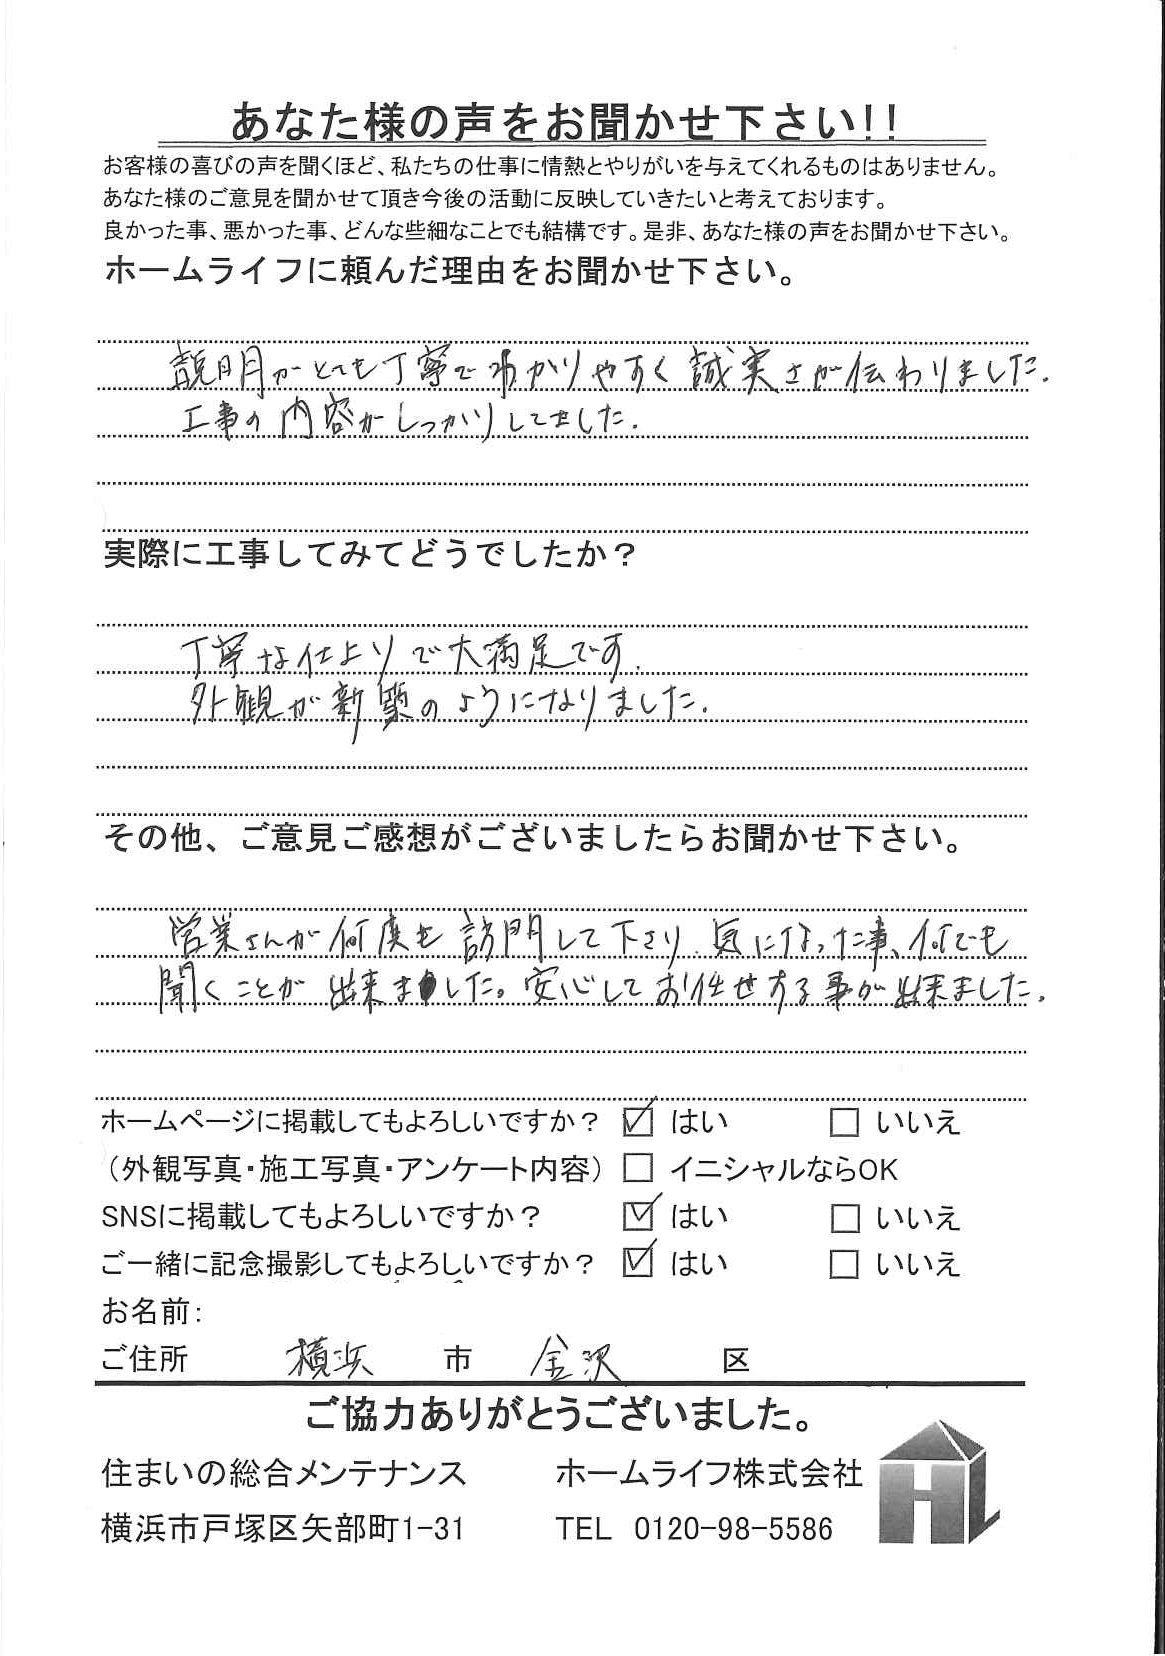 あなた様の声をお聞かせ下さい!!
お客様の喜びの声を聞くほど、私たちの仕事に情熱とやりがいを与えてくれるものはありません。
あなた様のご意見を聞かせて頂き今後の活動に反映していきたいと考えております。
良かった事、悪かった事、どんな些細なことでも結構です。是非、あなた様の声をお聞かせ下さい。
ホームライフに頼んだ理由をお聞かせ下さい。
説明がとても丁寧でわかりやすく誠実さが伝わりました.
工事の内容がしっかりしてました.
実際に工事してみてどうでしたか?
丁寧な仕上りで大満足です.
外観が新築のようになりました.
その他、ご意見ご感想がございましたらお聞かせ下さい。
営業さんが何度も訪問して下さり、気になった事、何でも
聞くことが出来ました。安心してお任せする事が出来ました.
ホームページに掲載してもよろしいですか? ☑ はい □ いいえ
(外観写真・施工写真・アンケート内容) □ イニシャルならOK
SNSに掲載してもよろしいですか? ☑ はい □ いいえ
ご一緒に記念撮影してもよろしいですか? ☑ はい □ いいえ
お名前:
ご住所 横浜 市 金沢 区
ご協力ありがとうございました。
住まいの総合メンテナンス ホームライフ株式会社
横浜市戸塚区矢部町1-31 TEL 0120-98-5586
HL